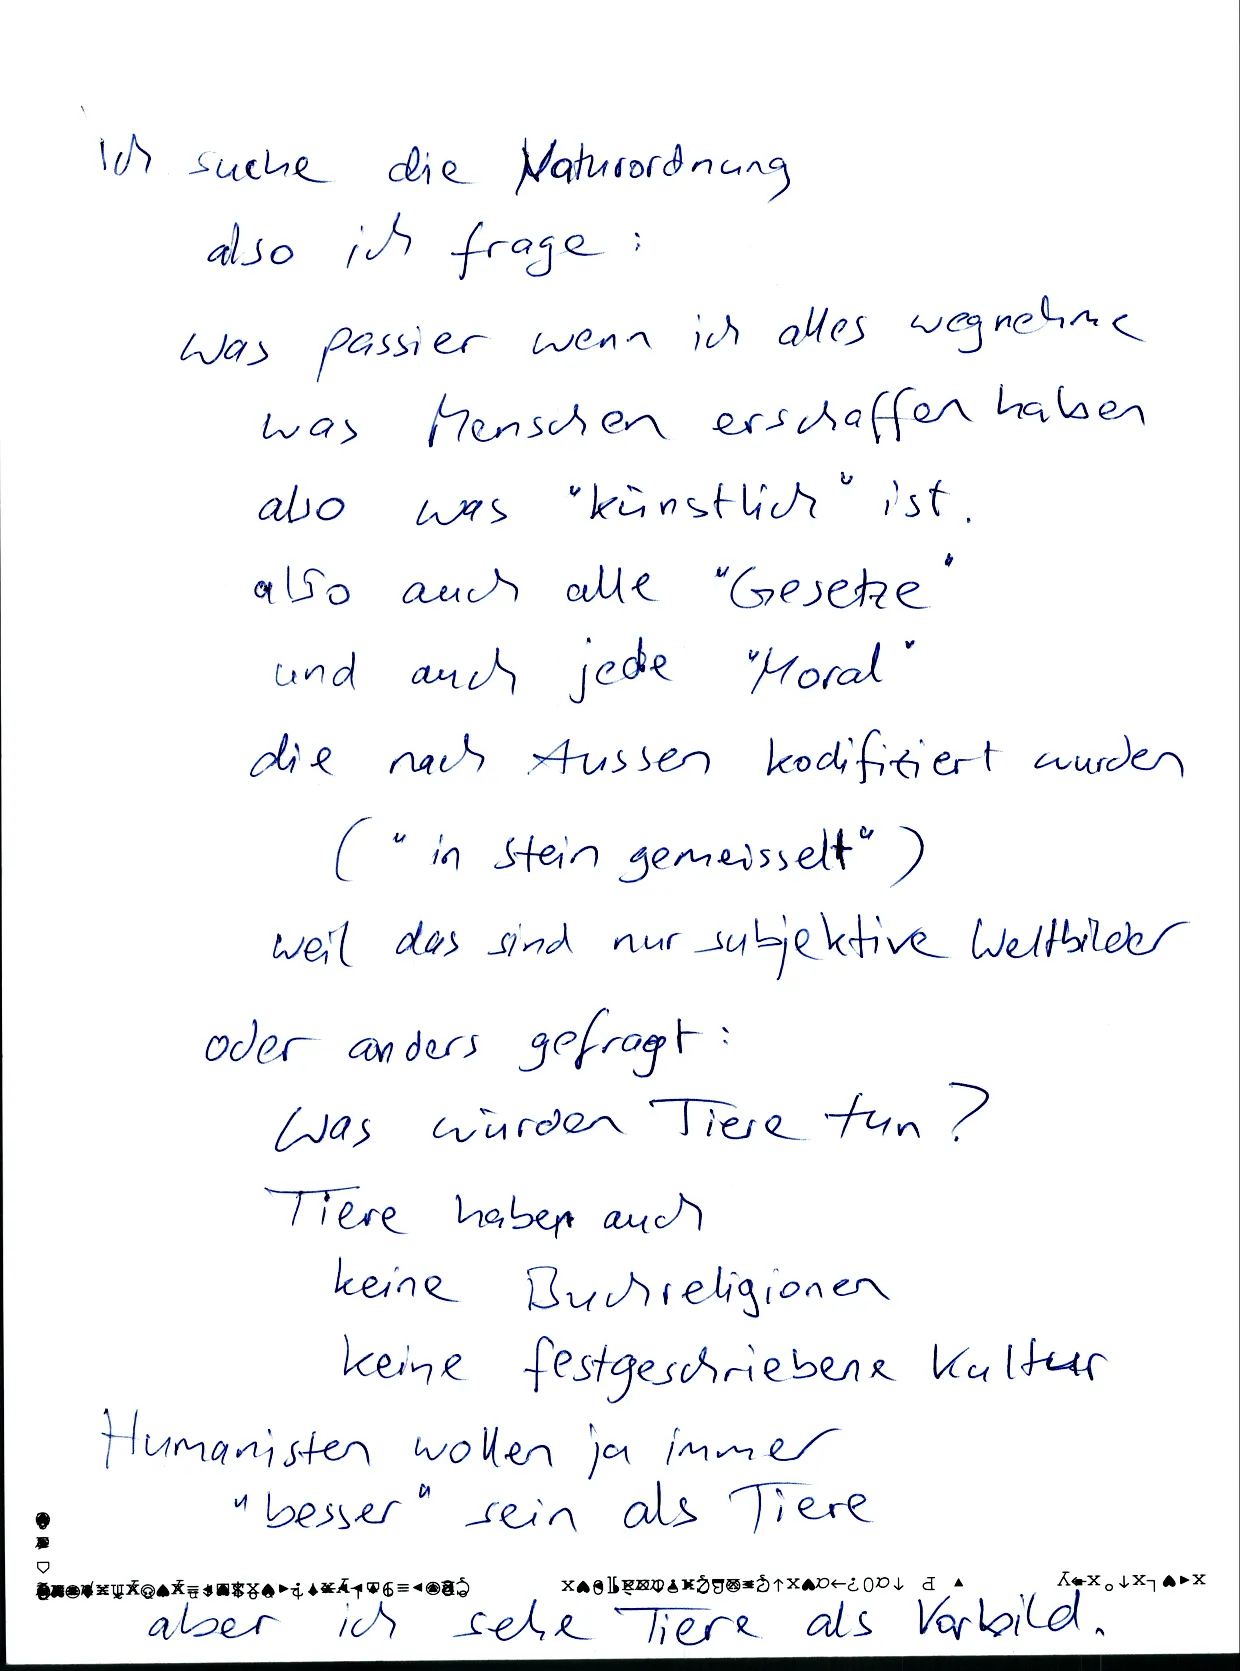 Ich suche die Naturordnung
also ich frage:
was passier wenn ich alles wegnehme
was Menschen erschaffen haben
also was "künstlich" ist.
also auch alle "Gesetze"
und auch jede "Moral"
die nach Aussen kodifiziert wurden
("in stein gemeisselt")
weil das sind nur subjektive Weltbilder
oder anders gefragt:
Was würden Tiere tun?
Tiere haben auch
keine Buchreligionen
keine festgeschriebene Kultur
Humanisten wollen ja immer
"besser" sein als Tiere
aber ich sehe Tiere als Vorbild.